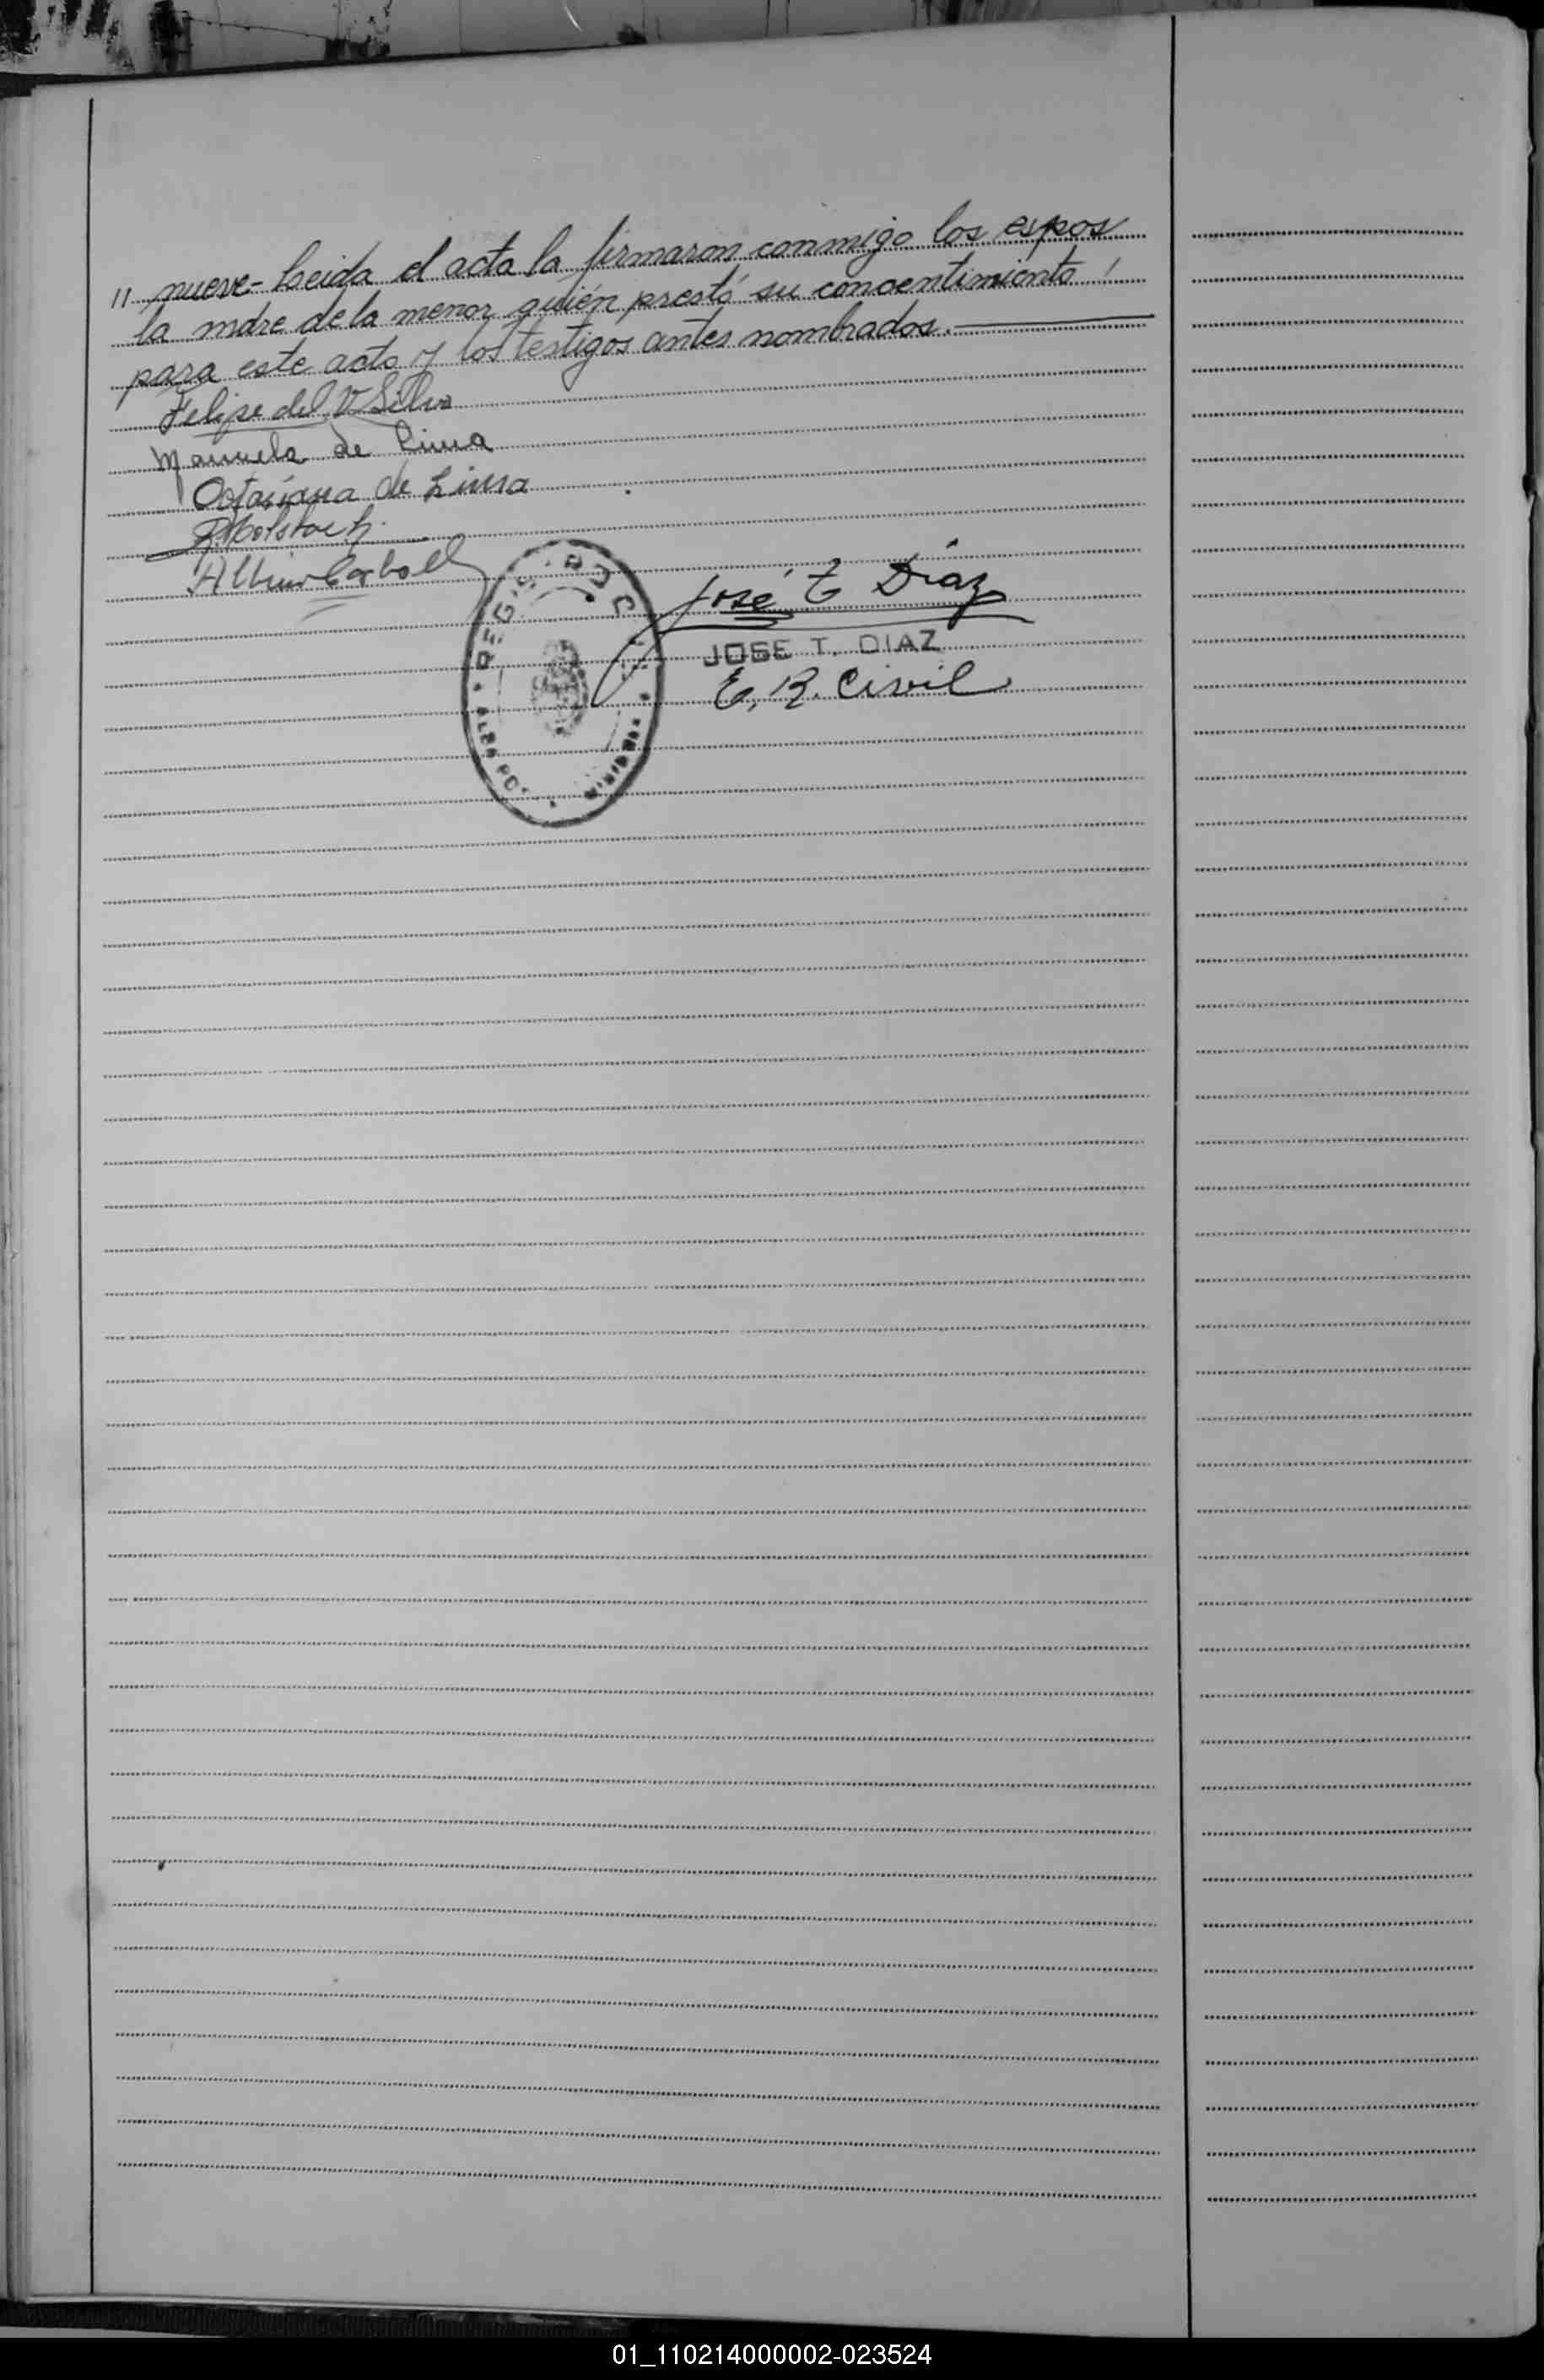 " nueve - Leida el acta la firmaron conmigo los espos
la mdre de la menor quién prestó su concentimiento !
para este acto y los testigos antes nombrados.
Felipe del V Silva
Manuela de Lima
Octaviana de Lima
José T Diaz
JOSE T. DIAZ
E. R. Civil
01_110214000002-023524